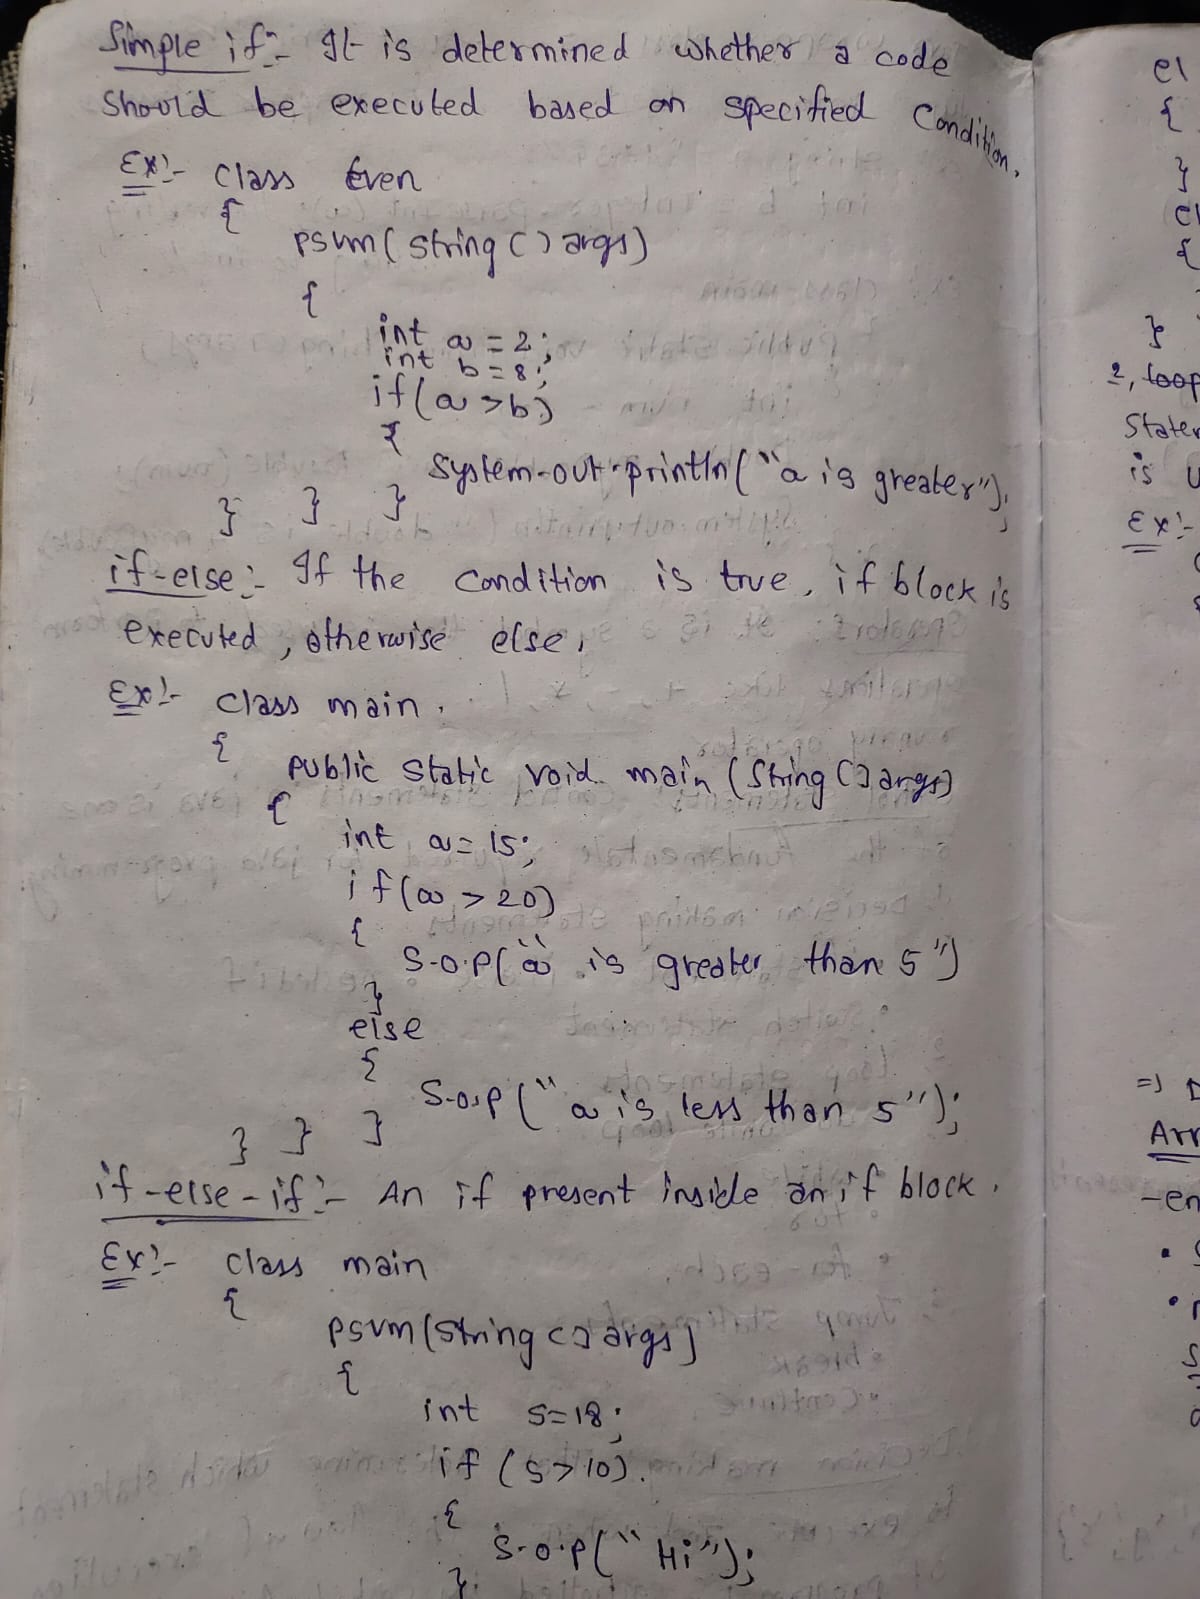 Simple if:- It is determined whether a code
should be executed based on specified Condition.
Ex:- class Even
{
psvm(string () args)
{
int a = 2;
int b = 8;
if(a>b)
{
System.out.println("a is greater");
} } }
if-else:- If the condition is true, if block is
executed, otherwise else.
Ex:- class main.
{
public static void main (String [] args)
{
int a = 15;
if(a > 20)
{
S.o.p("a is greater than 5")
}
else
{
S.o.p("a is less than 5");
} } }
if-else-if:- An if present inside an if block.
Ex:- class main
{
psvm(string [] args)
{
int s=18;
if (s>10).
{
S.o.p("Hi");
}
el
{
}
{
}
2, loop
is
Ex:-
Arr
-en